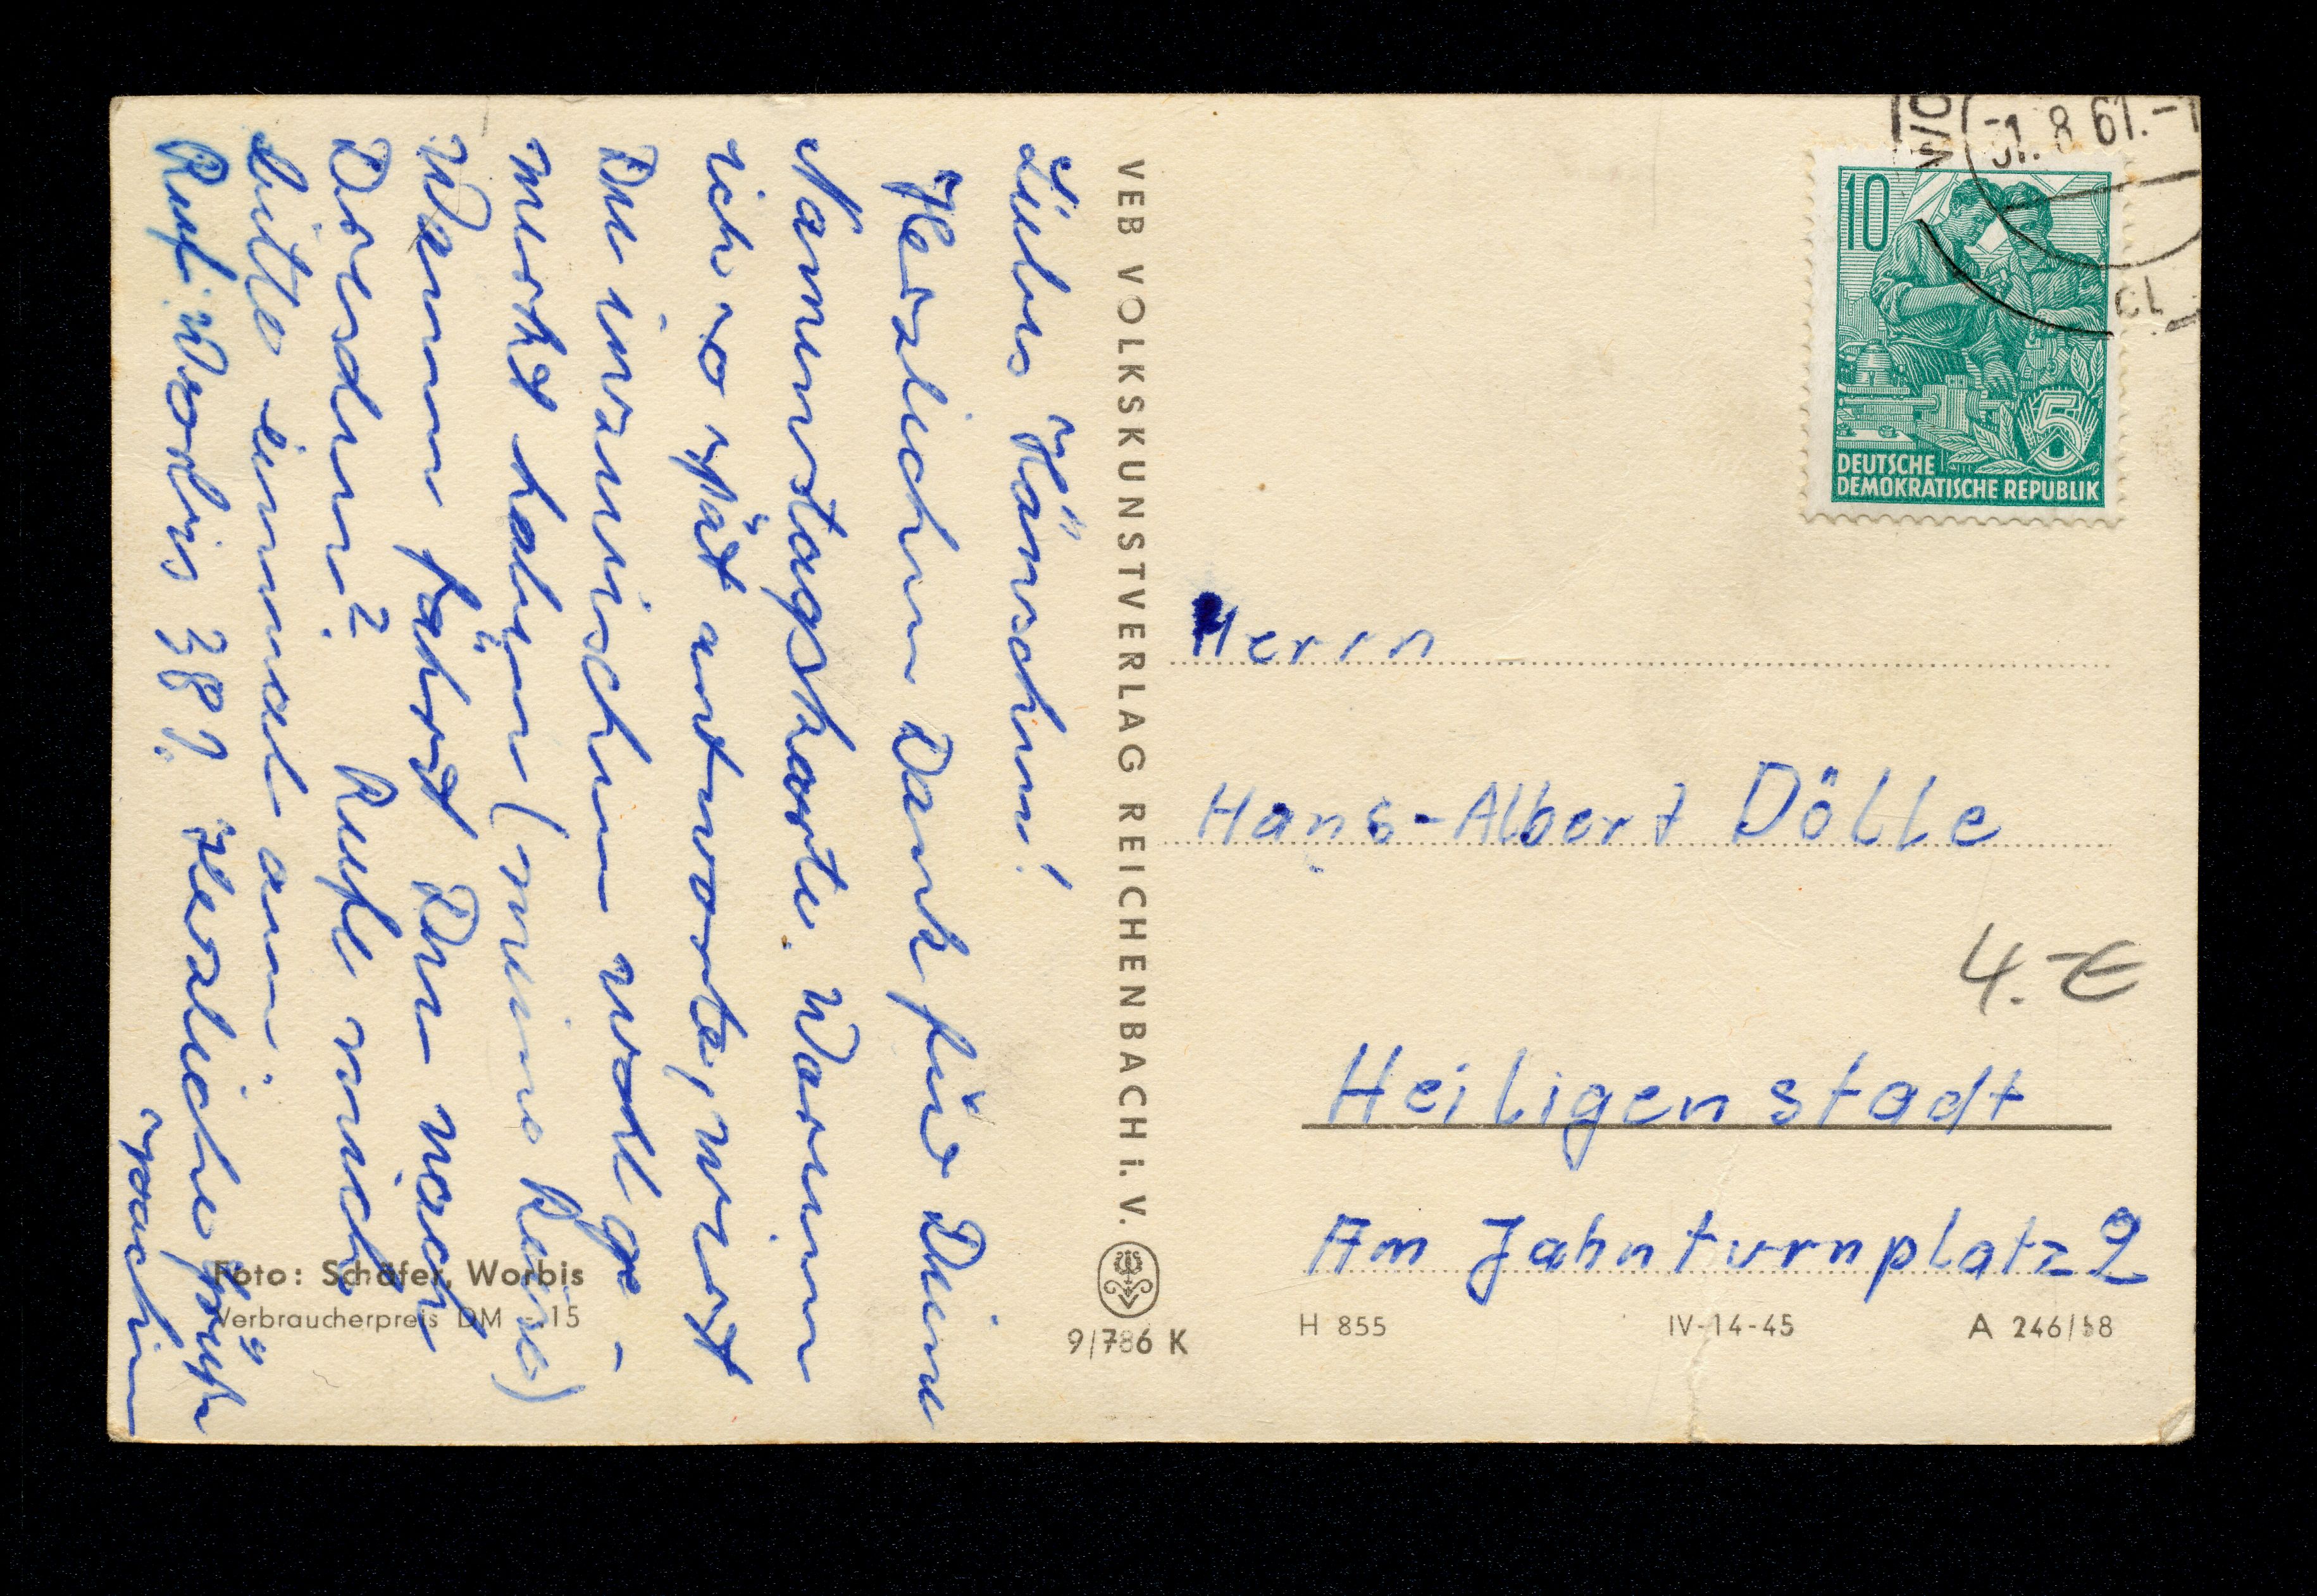 Liebes Hänschen!
Herzlichen Dank für Deine
Namenstagskarte. Warum
ich so spät antworte, wirst
Du inzwischen wohl ge-
merkt haben (meine Reise)
Wann fährst Du nach
Dresden? Rufe mich
bitte einmal an.
Ruf: Worbis 387. Herzliche Grüße
Joachim
Foto: Schäfer, Worbis
Verbraucherpreis DM 15
VEB VOLKSKUNSTVERLAG REICHENBACH i. V.
9/786 K
8 61.-1
10
5
DEUTSCHE
DEMOKRATISCHE REPUBLIK
Herrn
Hans-Albert Dölle
4.-€
Heiligenstadt
Am Jahnturnplatz 2
H 855
IV-14-45
A 246/58